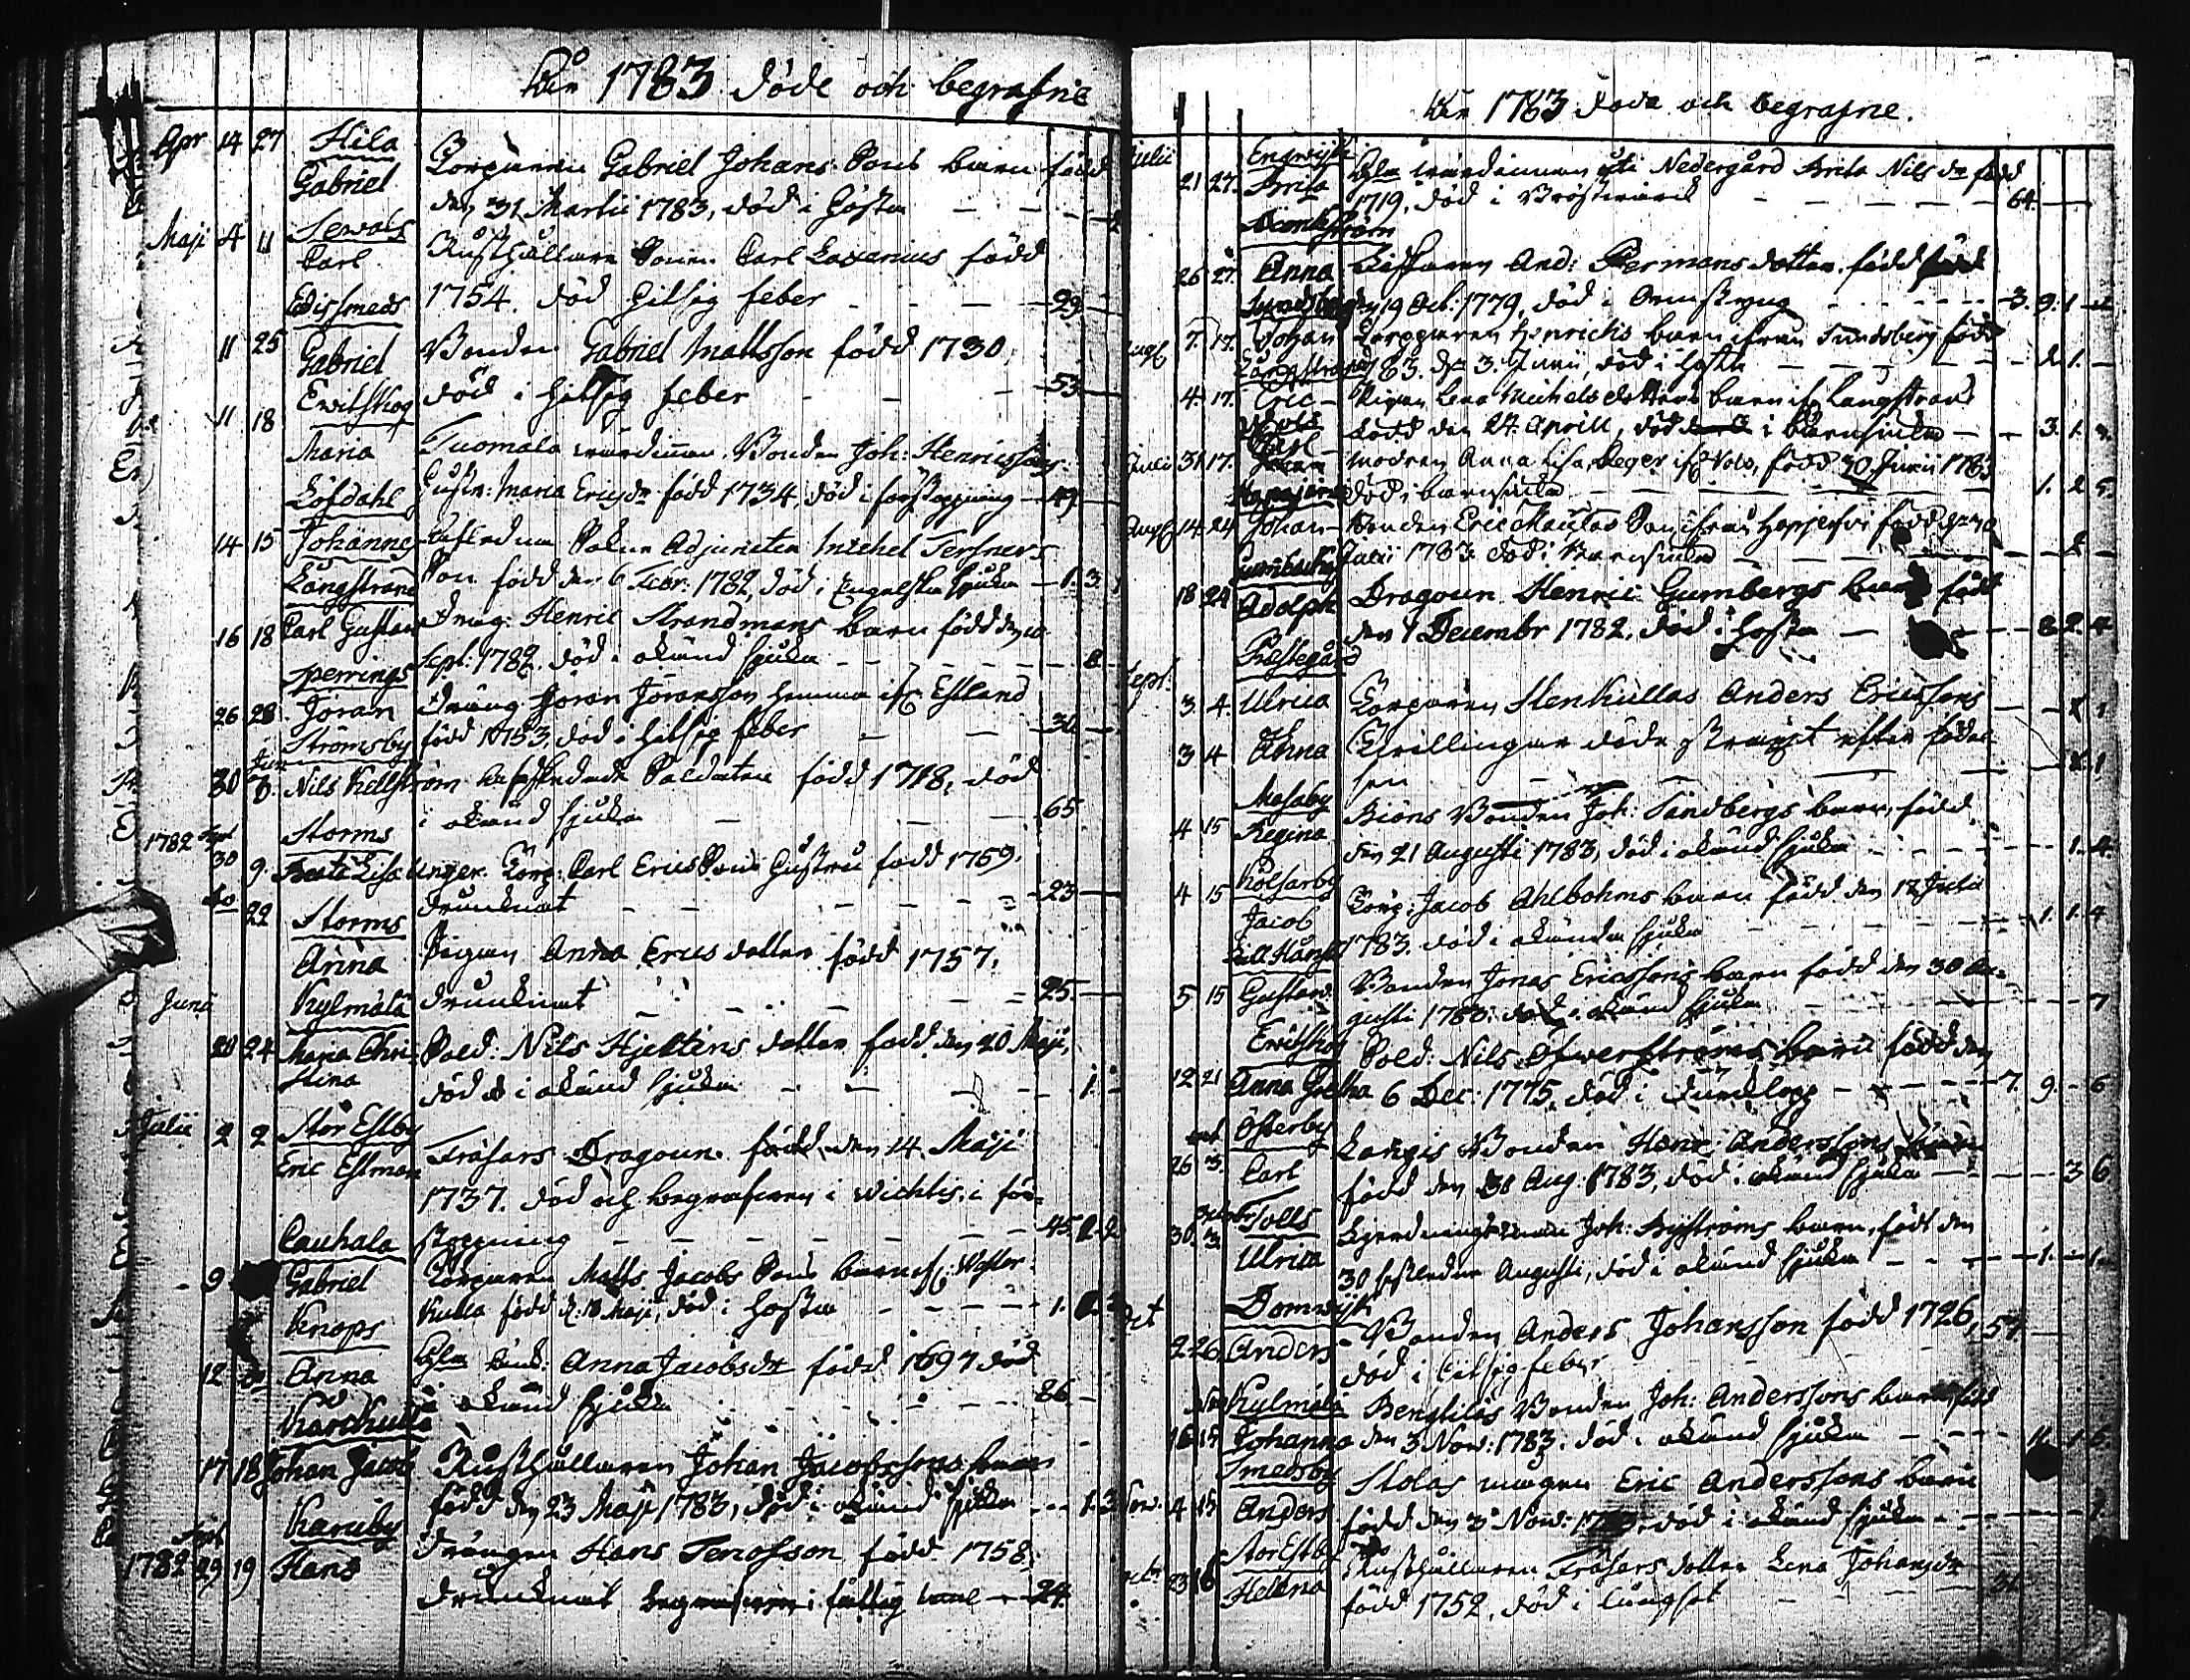 åhr 1783 döde och begrafne
Apr 14 27 Hila
Gabriel Torparen Gabriel Johans Sons barn född
den 31 Martii 1783, död i Hosta
Maji 4 11 Sewals
Carl Rusthållare Sonen Carl Laxenius född
1754. död Hitsig feber 29
11 25 Edissmeds
Gabriel Bonden Gabriel Mattsson född 1730,
död i hitsig feber 53
11 18 Evitskog
Maria Tuomala värdinnan Bonden Joh: Henricssons
Hustru: Maria Ericsdr född 1734, död i förstoppning 49
14 15 Löfdahl
Johannes Sakn Adjuncten Michel Tersners
Son född den 6 Febr: 1782, död i Engelska sjukan 1. 3
16 18 Långstrand
Carl Gustav Drag: Henric Strandmans barn född den 10
Sept: 1782. död i okänd sjuka 8
26 28 Sperrings
Jöran Dräng Jöran Jöransson hemma ifr Estland
född 1753, död i hitsig feber 30
Strömsby
30 Jun 8. Nils Kellström afskedade Soldaten född 1718, död
i okänd sjuka 65
1782 Sept 30 9. Storms
Beata Lisa Unger. Torp: Carl Erics Sons Hustru född 1759.
drunknat 23
do 22 Storms
Anna Pigan Anna Ericsdotter född 1757.
drunknat 25
Junii 20 24 Kylmälä
Maria Chri- Sold: Nils Hjeltens dotter född den 20 Maji,
stina död i okänd sjuka 1.
Julii 2 2 Stor Estby
Eric Estman Fräsars Dragoun född den 14 Maji
1737. död och begrafven i Wichtis, i för-
stoppning 45. 1. 2
9 Cauhala
Gabriel Torparen Matts Jacobs Sons barn ifr: Wester
kulla född d. Maji, död i hosta 1.
12 do Knaps
Anna Gla Änk: Anna Jacobsdr född 1697 död
i okänd sjuka 86
17 18 Karskulla
Johan Jacob Rusthållaren Johan Jacobssons barn
född den 23 Maji 1783, död i okänd sjuka 1. 3
1782 Sept 29 19 Karuby
Hans Drängen Hans Tenosson född 1758,
drunknat begrafven i 24
åhr 1783 döde och begrafne.
Julii 21 27. Engwijk
Brita Gla wärdinnan uti Nedergård Brita Nilsdr född
1719, död i Bröstwärck 64.
26 27. Anna And: Permans dotter född
den 19 Oct. 1779, död i 3. 9. 1
Aug 7. 17. Sundsberg
Johan Torparen Henrichs barn ifrån Sundsberg född
1783. d. 3. Junii, död i hosta 2. 1.
4. 17. Långstrand
Eric Pigan Lena Michelsdotters barn ifr Långstrand
född den 27. Aprill, död i barnsiukd 3. 1.
Julii 31 17. modren Anna Lisa Beger ifr Nols, född 30 Junii 1783
död i barnsiukd 1. 2 5.
Aug 14 24 Johan Bonden Eric Son ifrån
Julii 1783. död i barnsiukd
18 24 Gumbacka
Adolph Dragoun Henric Gumbergs barn född
den 1 Decembr 1782, död i hosta 8. 2. 4
Sept. 3. 4. Prestegård
Ulrica Torparen Stenkullas Anders Ericssons
3 4 Anna Tvillingar döde straxt efter födel
sen 1
4 15 Masaby
Regina Biöns Bonden Joh: Sandbergs barn, född
den 21 Augusti 1783, död i okänd sjuka 1. 4.
4 15 Kolsarby
Jacob Torp: Jacob Ahlbohms barn född den 17 Julii
1783. död i okända sjuka 1. 1. 4
5 15 Gustav Bonden Jonas Ericssons barn född den 30 Au-
gusti 1783. död i okänd sjuka 7
12 21 Evitskog
Anna Gretha Sold: Nils Öfwerströms barn född den
6 Dec: 1775, död i durklopp 7. 9. 6
26 3. Österby
Carl Långis Bonden Hans Anderssons barn
född den 30 Aug: 1783, död i okänd sjuka 3 6
30. 3. Tolls
Ulrica Joh: Byströms barn, född den
30 Augusti, död i okänd sjuka 1. 1.
Oct 2 26. Domwijk
Anders Bonden Anders Johansson född 1726, 57
död i hitsig feber
16 17 Kylmälä
Johanna Bengtilas Bonden Joh: Anderssons barn född
den 3 Now: 1783. död i okänd sjuka
Now. 4 15 Smedsby
Anders Stolas mågen Eric Anderssons barn
född den 3 Now: 1783. död i okänd sjuka 1.
23 16 Stor Estby
Helena Rusthållaren Fräsars dotter Lena Johansdr
född 1752, död i lungsot 31.